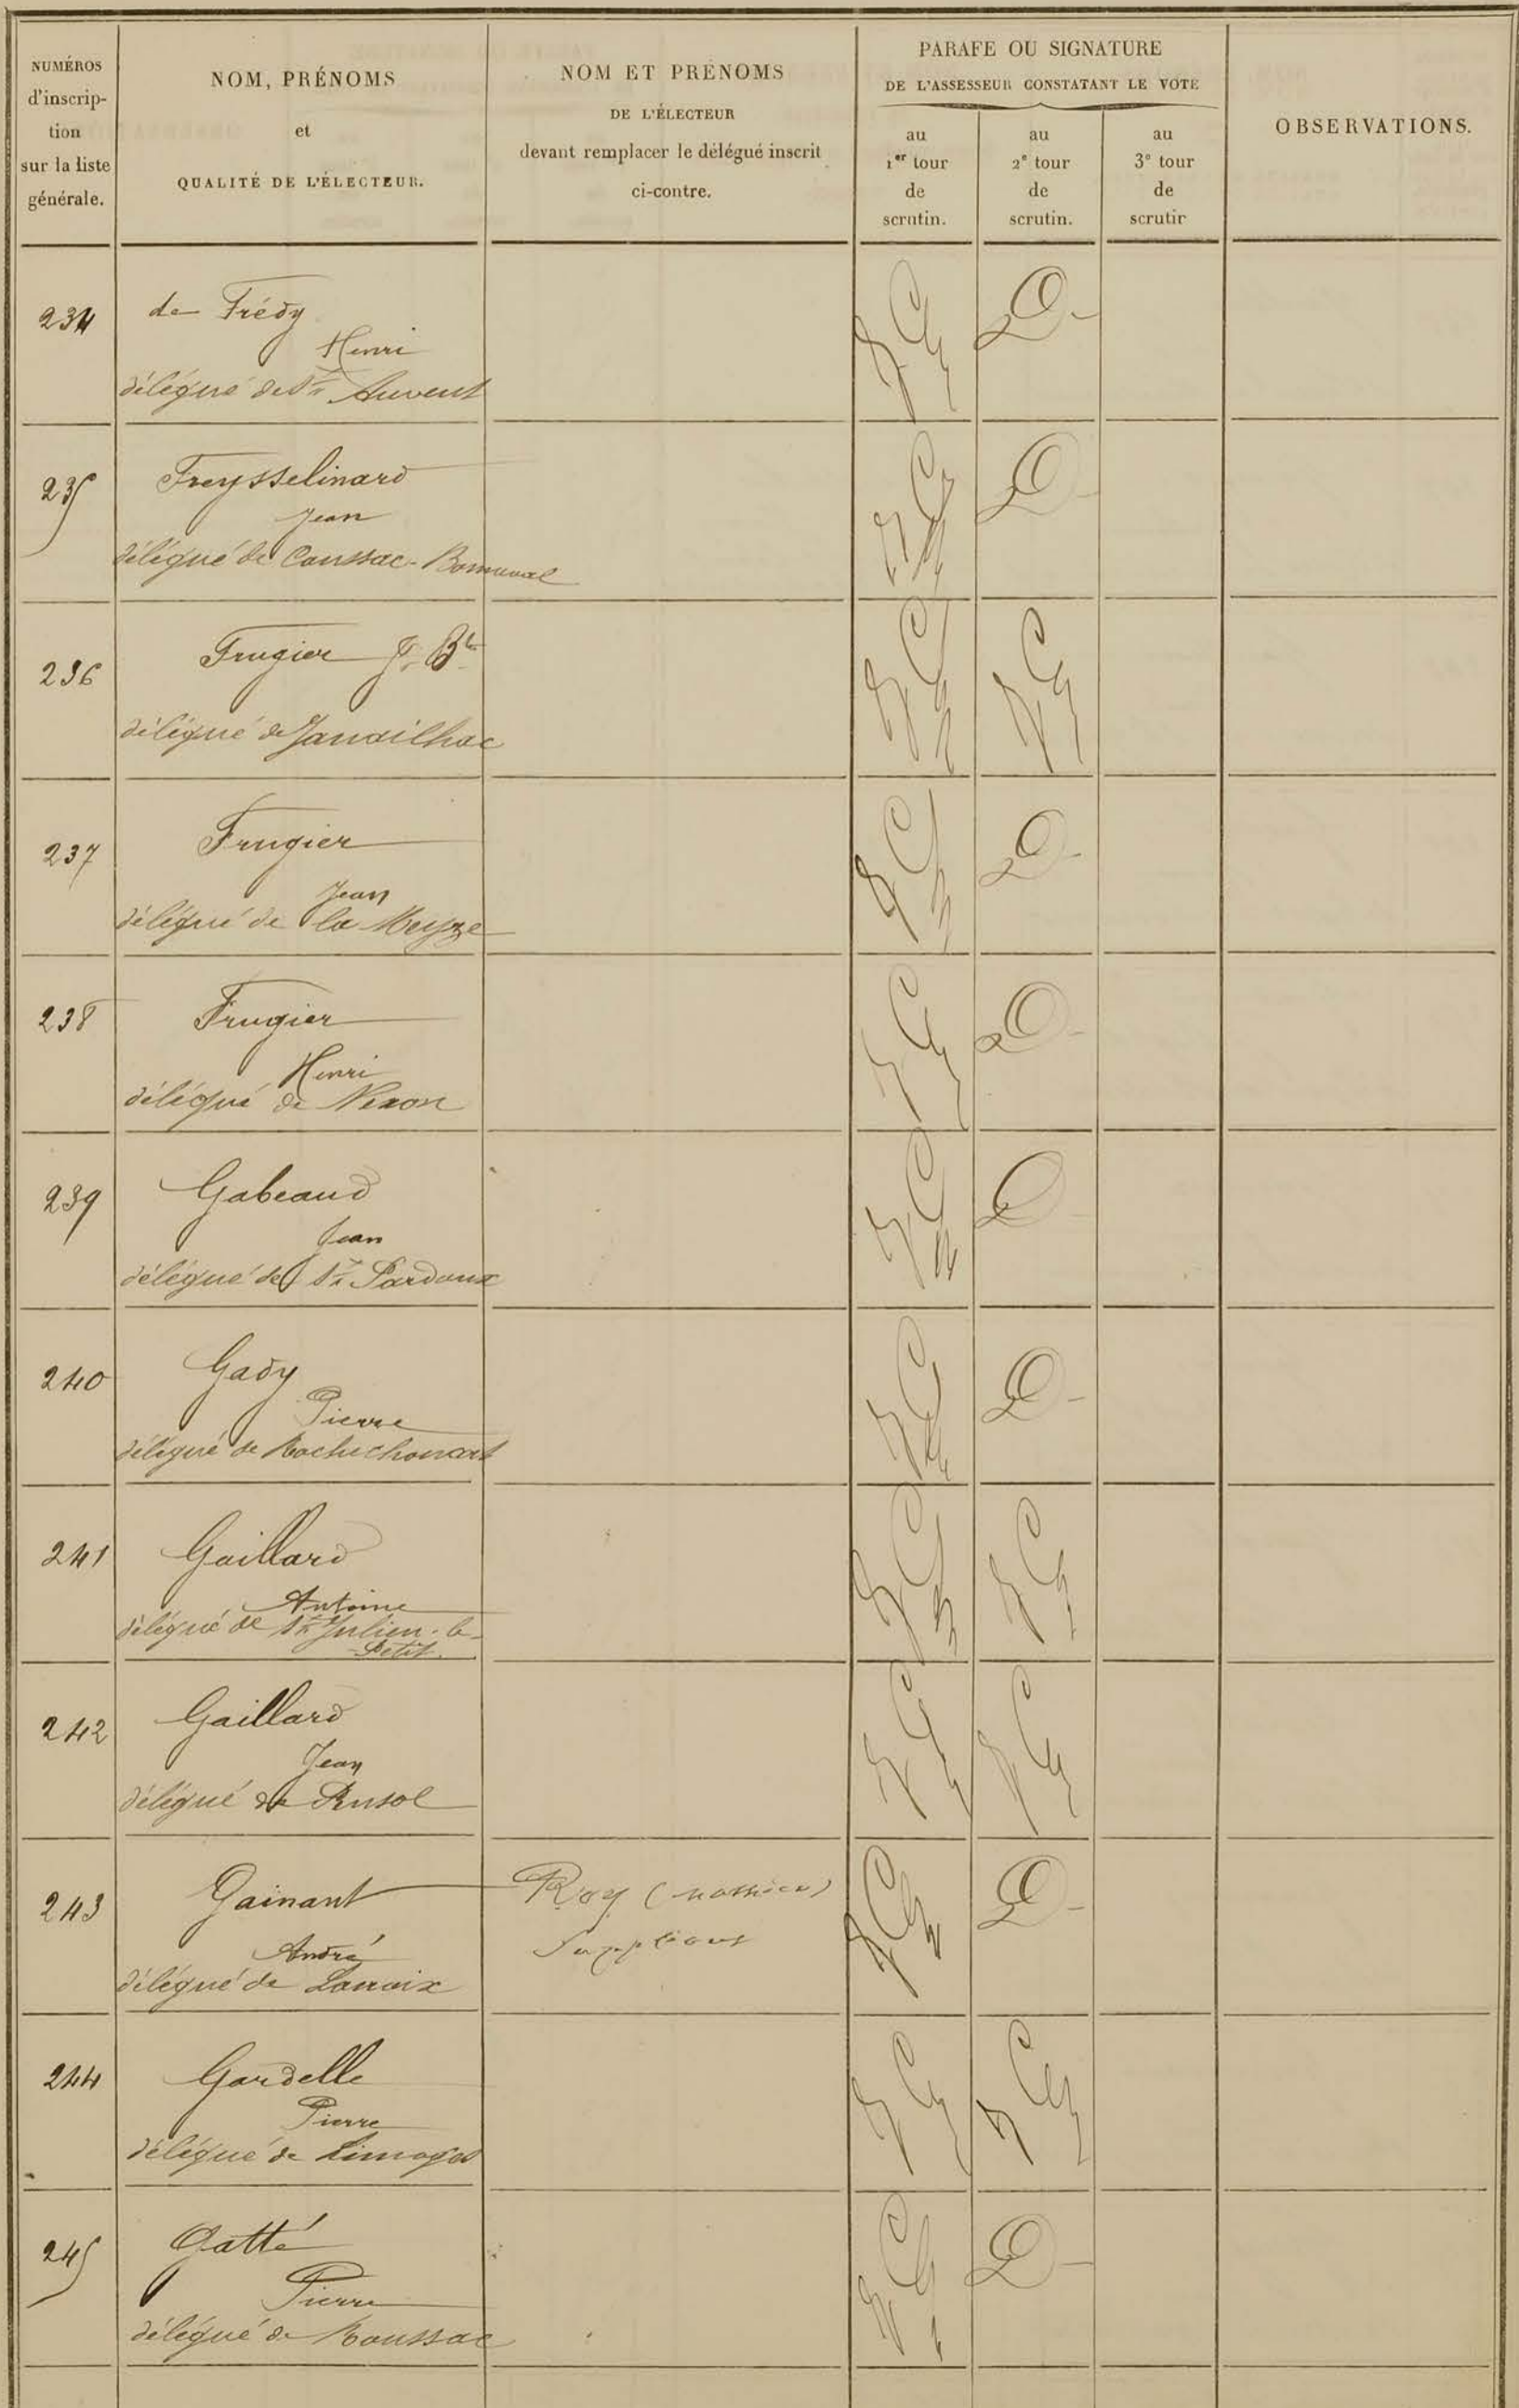 NUMÉROS
d'inscrip-
tion
sur la liste
générale.
NOM, PRÉNOMS
et
QUALITÉ DE L'ÉLECTEUR.
NOM ET PRÉNOMS
DE L'ÉLECTEUR
devant remplacer le délégué inscrit
ci-contre.
PARAFE OU SIGNATURE
DE L'ASSESSEUR CONSTATANT LE VOTE
au
1er tour
de
scrutin.
au
2e tour
de
scrutin.
au
3e tour
de
scrutin
OBSERVATIONS.
234 de Frédy
Henri
délégué de St Auvent
235 Freysselinard
Jean
délégué de Coussac-Bonneval
236 Frugier J. Bte
délégué de Janailhac
237 Frugier
Jean
délégué de la Meyze
238 Frugier
Henri
délégué de Nexon
239 Gabeaud
Jean
délégué de St Pardoux
240 Gady
Pierre
délégué de Rochechouart
241 Gaillard
Antoine
délégué de St Julien-le-
Petit.
242 Gaillard
Jean
délégué de Rusol
243 Gainant Roy (Mathieu)
suppléant
André
délégué de Lacroix
244 Gardelle
Pierre
délégué de Limoges
245 Gatté
Pierre
délégué de Roussac